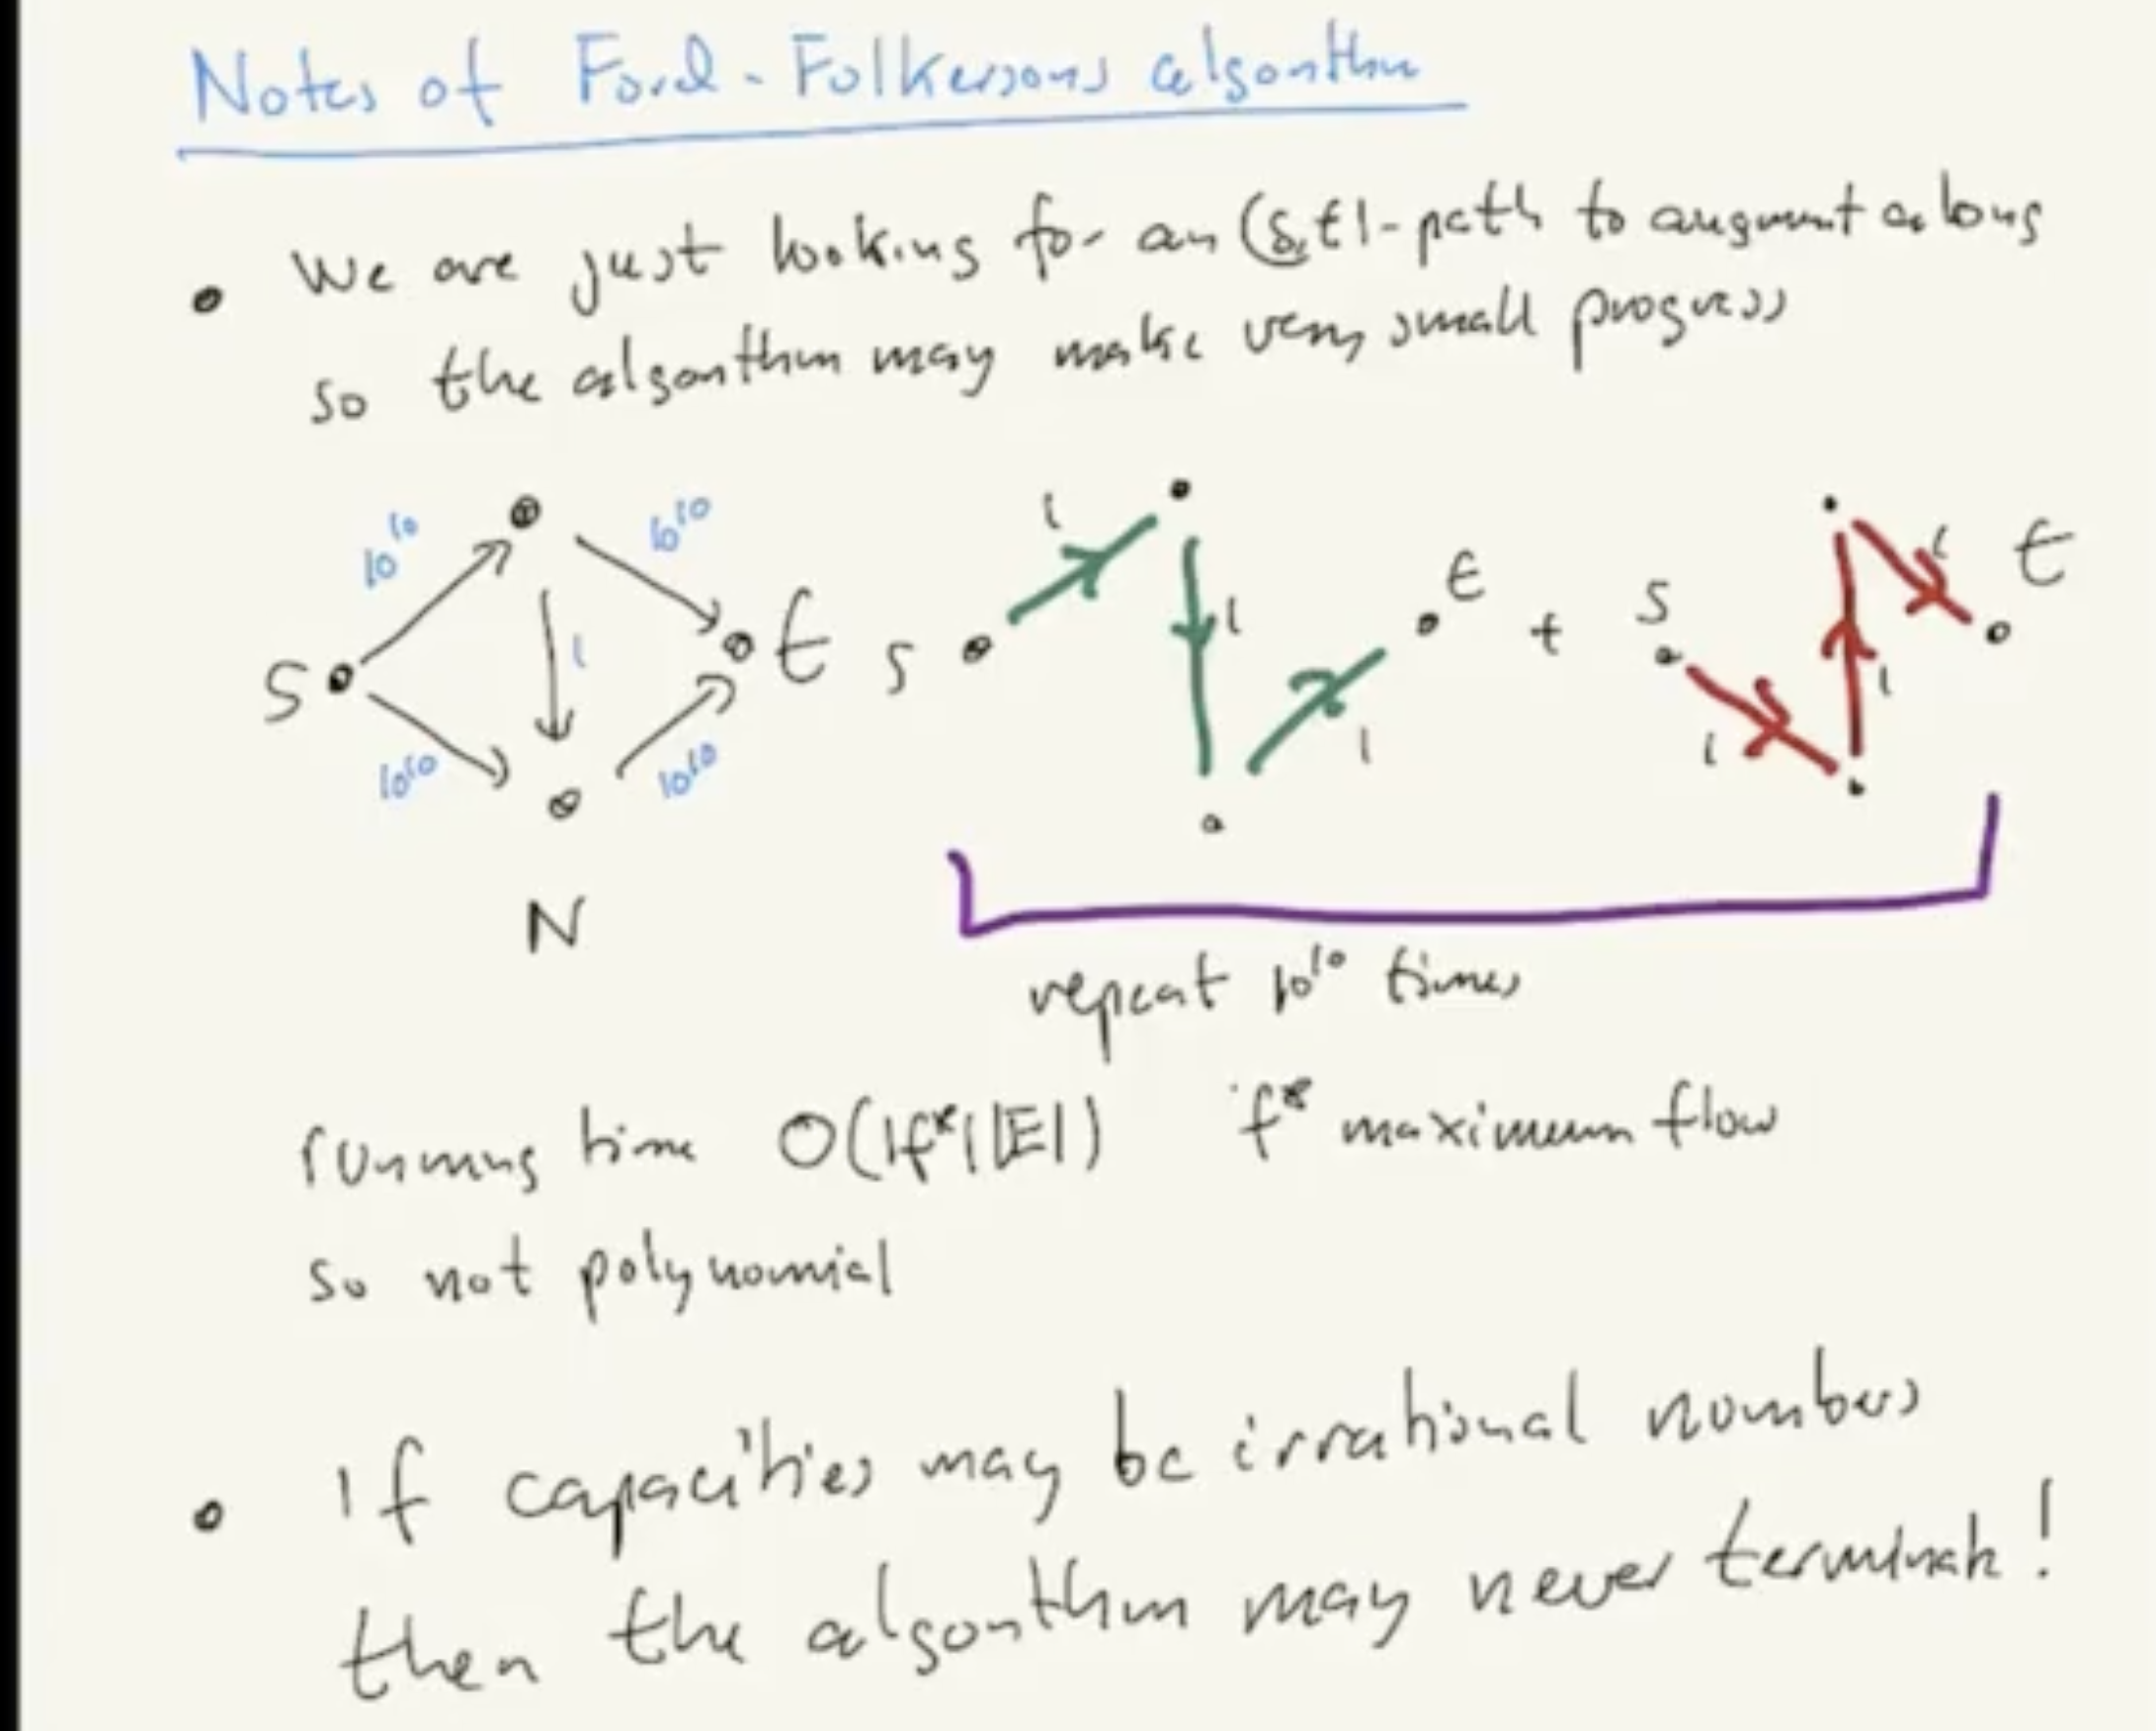 Notes of Ford-Folkersons algorithm
• We are just looking for an (s,t)-path to augment along
so the algorithm may make very small progress
10^10 10^10 1 1 t
s 1 t s 1 t + s 1
10^10 10^10 1 1
N
repeat 10^10 times
running time O(|f*||E|) f* maximum flow
so not polynomial
• If capacities may be irrational numbers
then the algorithm may never terminate!